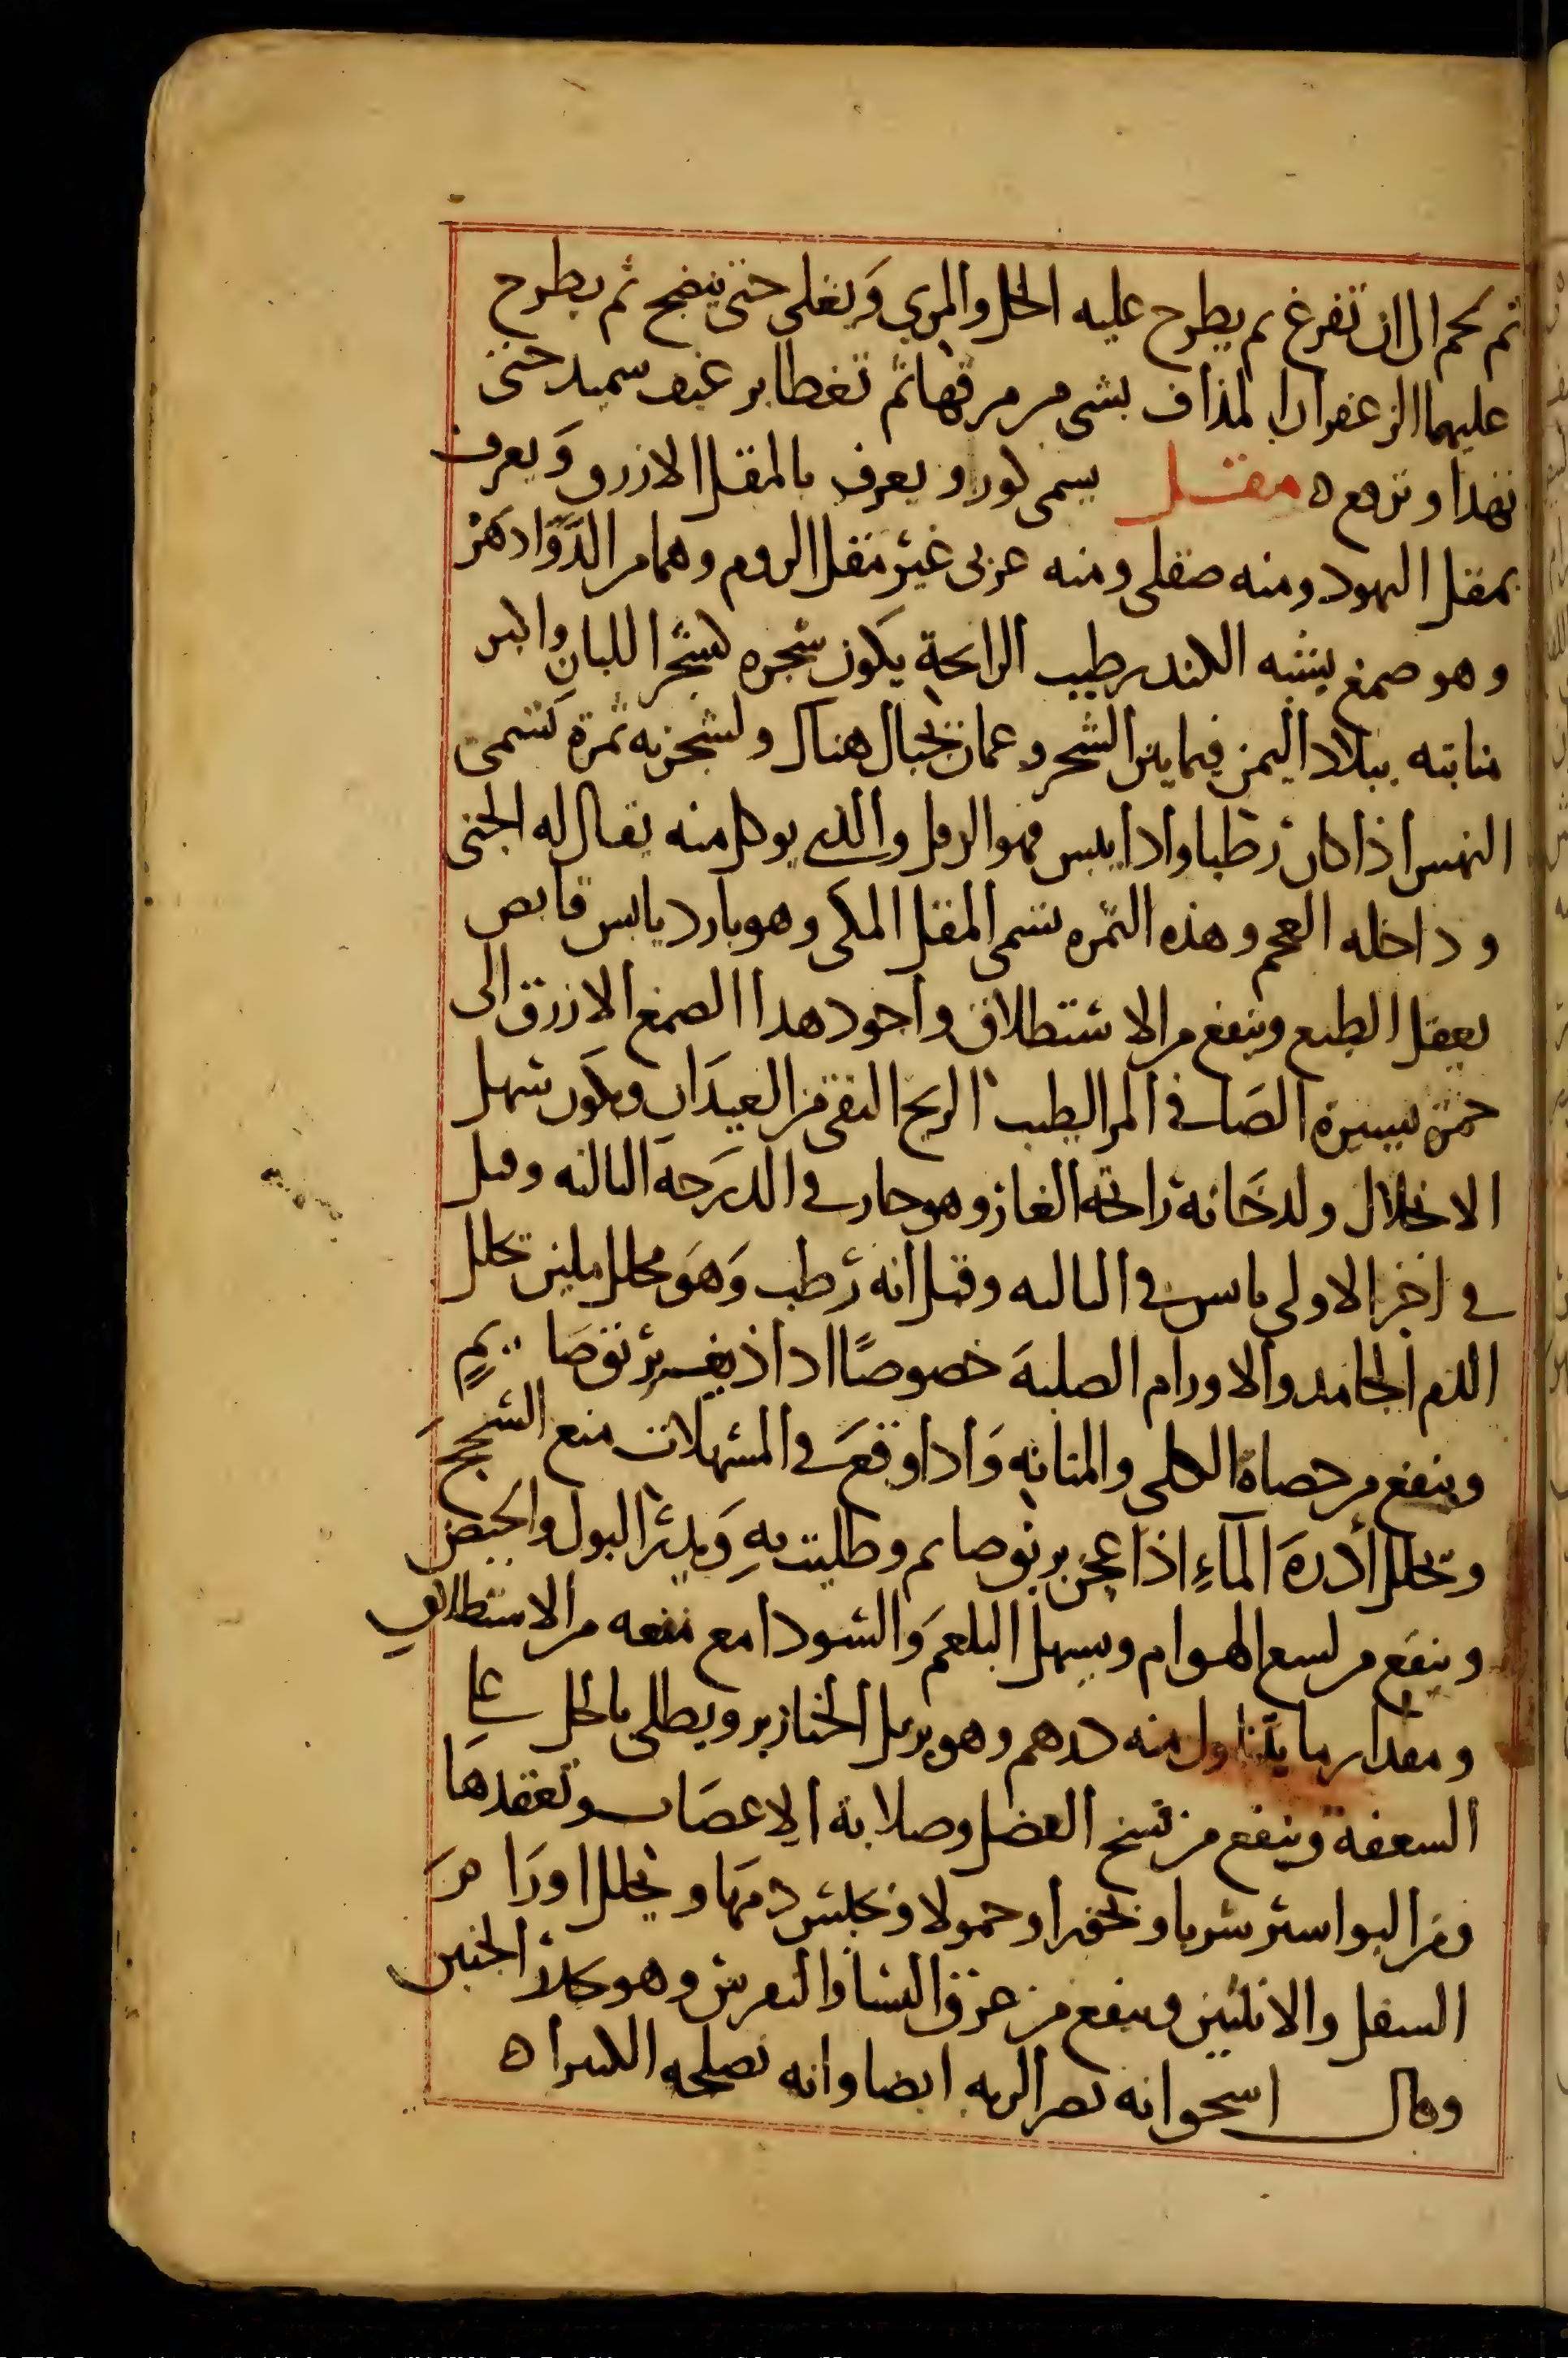 ثم يحمر الى ان تفرغ ثم يطرح عليه الخل والمري وَيغلى حتى ينضج ثم يطرح
عليهما الزعفران المذاف بشى من مرقها ثم تغطا برغيف سميد حتى
تهدا وترفع ه مقل يسمى كور ويعرف بالمقل الازرق وَيعرف
بمقل اليهود ومنه صقلى ومنه عربى غير مقل الروم وهما من الدَّوَادهن
وهو صمغ يشبه الكندر طيب الرائحة يكون شجره كشجر اللبان واكبر
منابته ببلاد اليمن فيما بين الشحر وعمان بجبال هناك ولشجرته ثمرة تسمى
النهس اذا كان رطبا واذا يبس فهو الوقل والذي يوكل منه يقال له الحتى
وداخله العجم وهذه الثمره تسمى المقل المكى وهو بارد يابس قابض
يعقل الطبع وينفع من الاستطلاق واجود هذا الصمغ الازرق الى
حمرة يسيرة الصَافى المر الطيب الريح النقى من العيدَان ويكون سهل
الانحلال ولدخانه رائحة الغار وهو حار فى الدرَجة الثالثه وقيل
فى اخر الاولى يابس فى الثالثه وقيل انه رطب وَهوَ محلل ملين تحلل
الدم الجامد والاورام الصلبة خصوصًا اذا اذيف بريق صَايمٍ
وينفع من حصاة الكلى والمثانه وَاذا وقعَ فى المسهلات منع السحج
وتحلل أدرة المآءِ اذا عجن بريق صايم وطليت بهِ وَيدر البول والحيض
وينفع من لسع الهوام ويسهل البلغم وَالسودا مع منعه من الاستطلاق
ومقدار ما يتناول منه درهم وهو يزيل الخنازير ويطلى بالخل على
السعفة وينفع من فسخ العضل وصلابة الاعصَاب وتعقدها
ومن البواسير شربا وبخورا وحمولا وتحبس دمهَا ويحلل اورَامَ
السفل والانثيين وينفع من عرق النسا والنقرس وهو
وقال اسحق انه يضر الريه ايضا وانه تصلحه الكثيرا ه